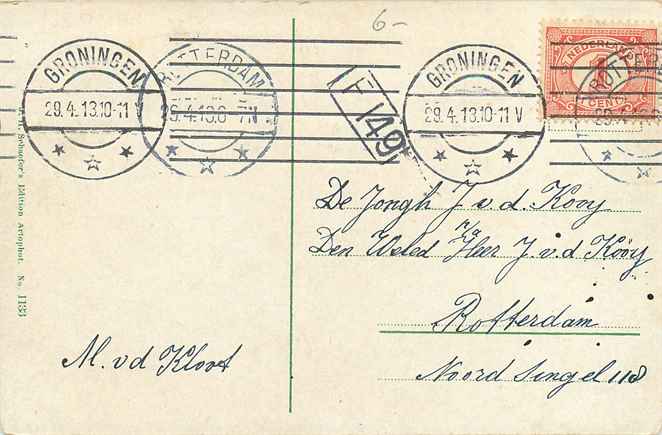 6-
GRONINGEN
29.4.13.10-11 V
ROTTERDAM
29.4.13.6-7.N
T 149
GRONINGEN
29.4.13.10-11 V
NEDERLAND
1
CENT
ROTTERDAM
29.4
Schaefer's Edition Artophot. No. 1133
De Jongh J. v. d. Kooy
n/a
Den Weled Heer J. v. d. Kooy
Rotterdam
Noord Singel 118
M. v d Kloot